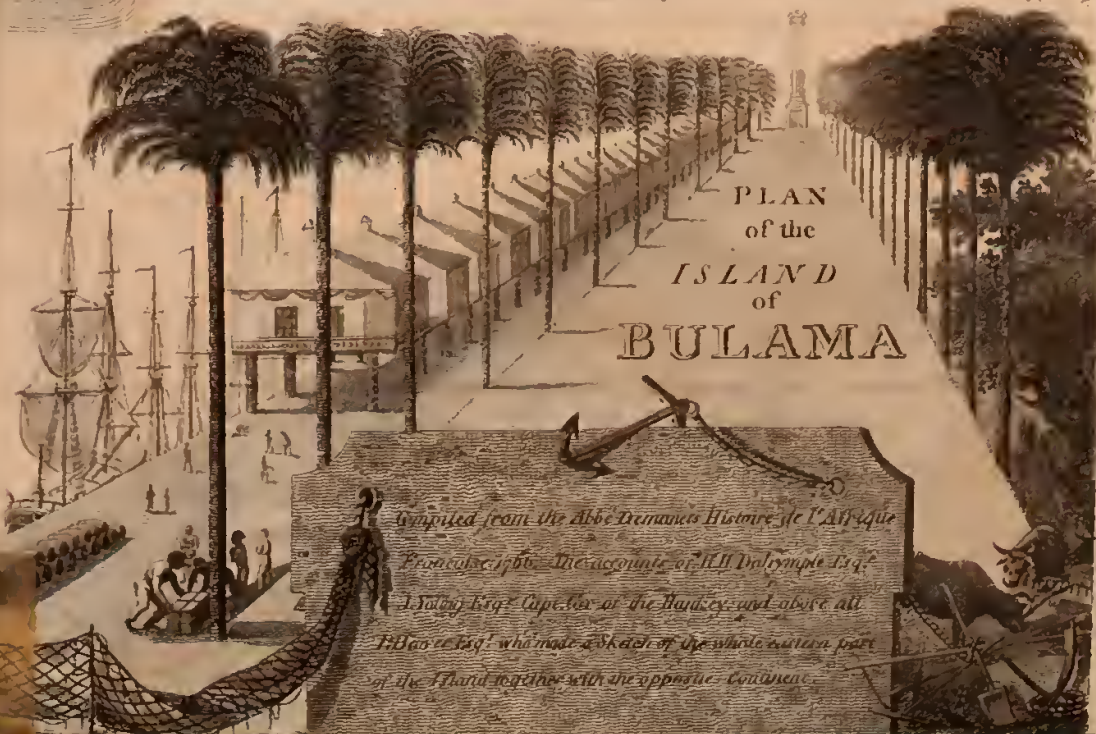 PLAN
of the
ISLAND
of
BULAMA
Compiled from the Abbé Demanets Histoire de l'Afrique
Francoise 1766. The accounts of H.H. Dalrymple Esqr.
J. Young Esqr. Capt. Cox of the Hankey, and above all
P. Beaver Esqr. who made a Sketch of the whole eastern part
of the Island together with the opposite Continent.